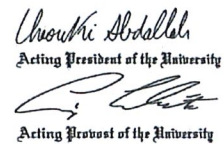 Chaouki Abdallah
Acting President of the University
Acting Provost of the University